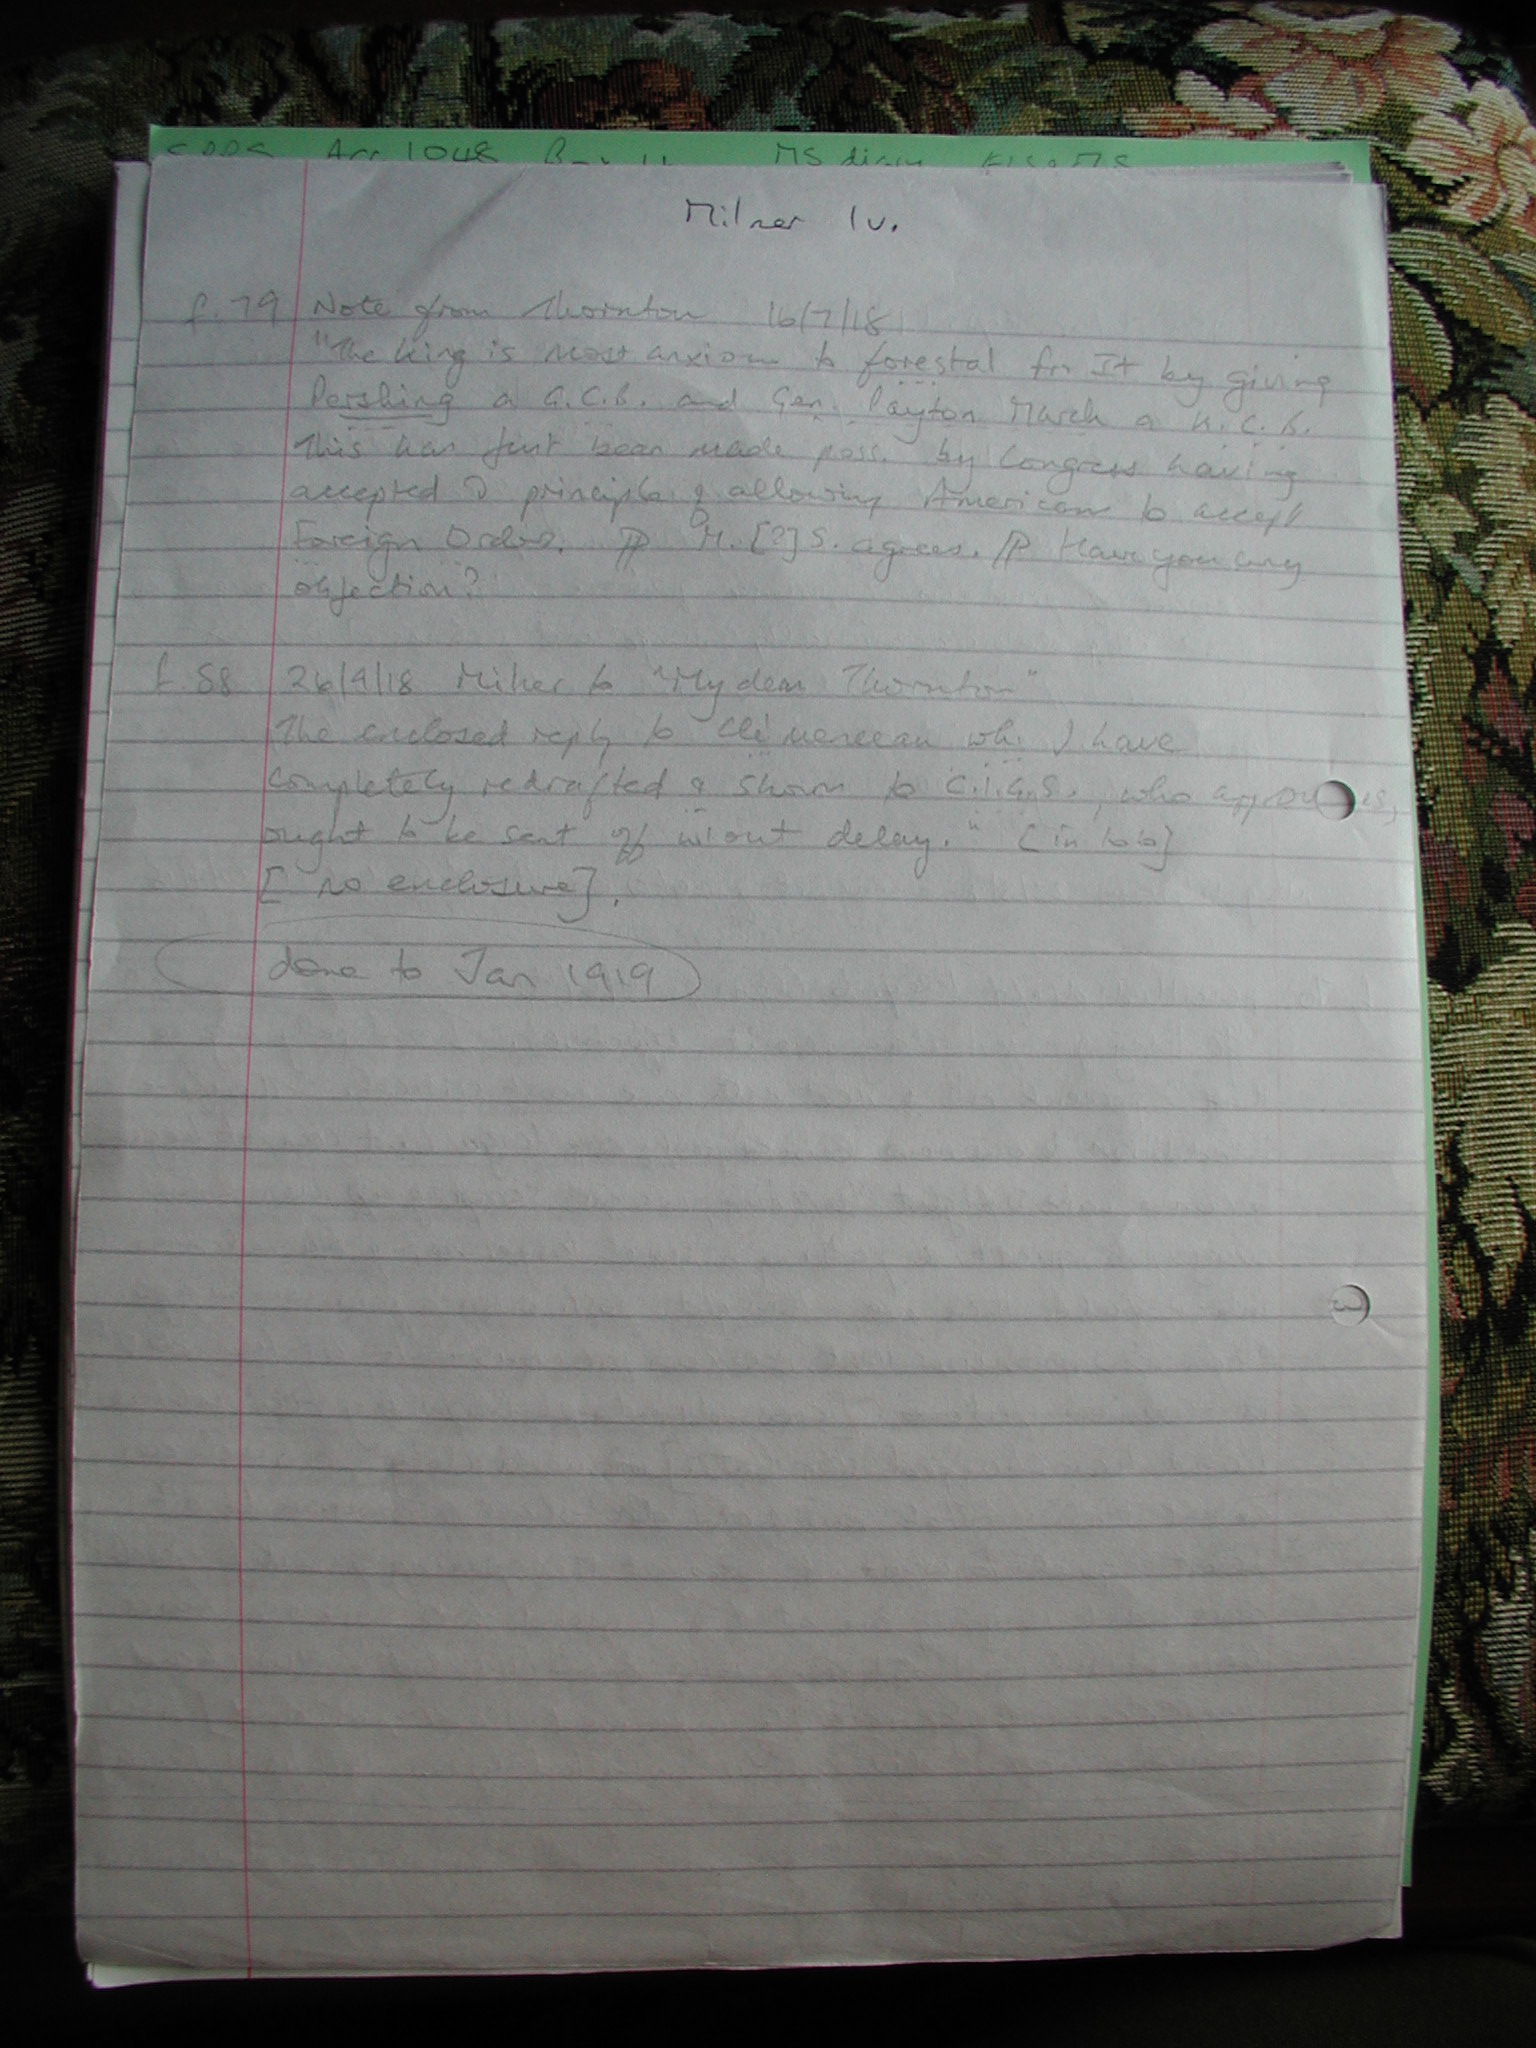 Acc 1048 Box MS diary
Milner iv.
f. 79 Note from Thornton 16/7/18
"The King is most anxious to forestal Fr It by giving
Pershing a G.C.B. and Gen. Payton March a K.C.B.
This has just been made poss. by Congress having
accepted principle of allowing Americans to accept
Foreign Orders. M. [?] S. agrees. Have you any
objection?
f. 88 26/9/18 Milner to "My dear Thornton"
The enclosed reply to Clémenceau wh. I have
completely redrafted & shown to C.I.G.S., who approves,
ought to be sent off w'out delay." [in toto]
[no enclosure].
done to Jan 1919